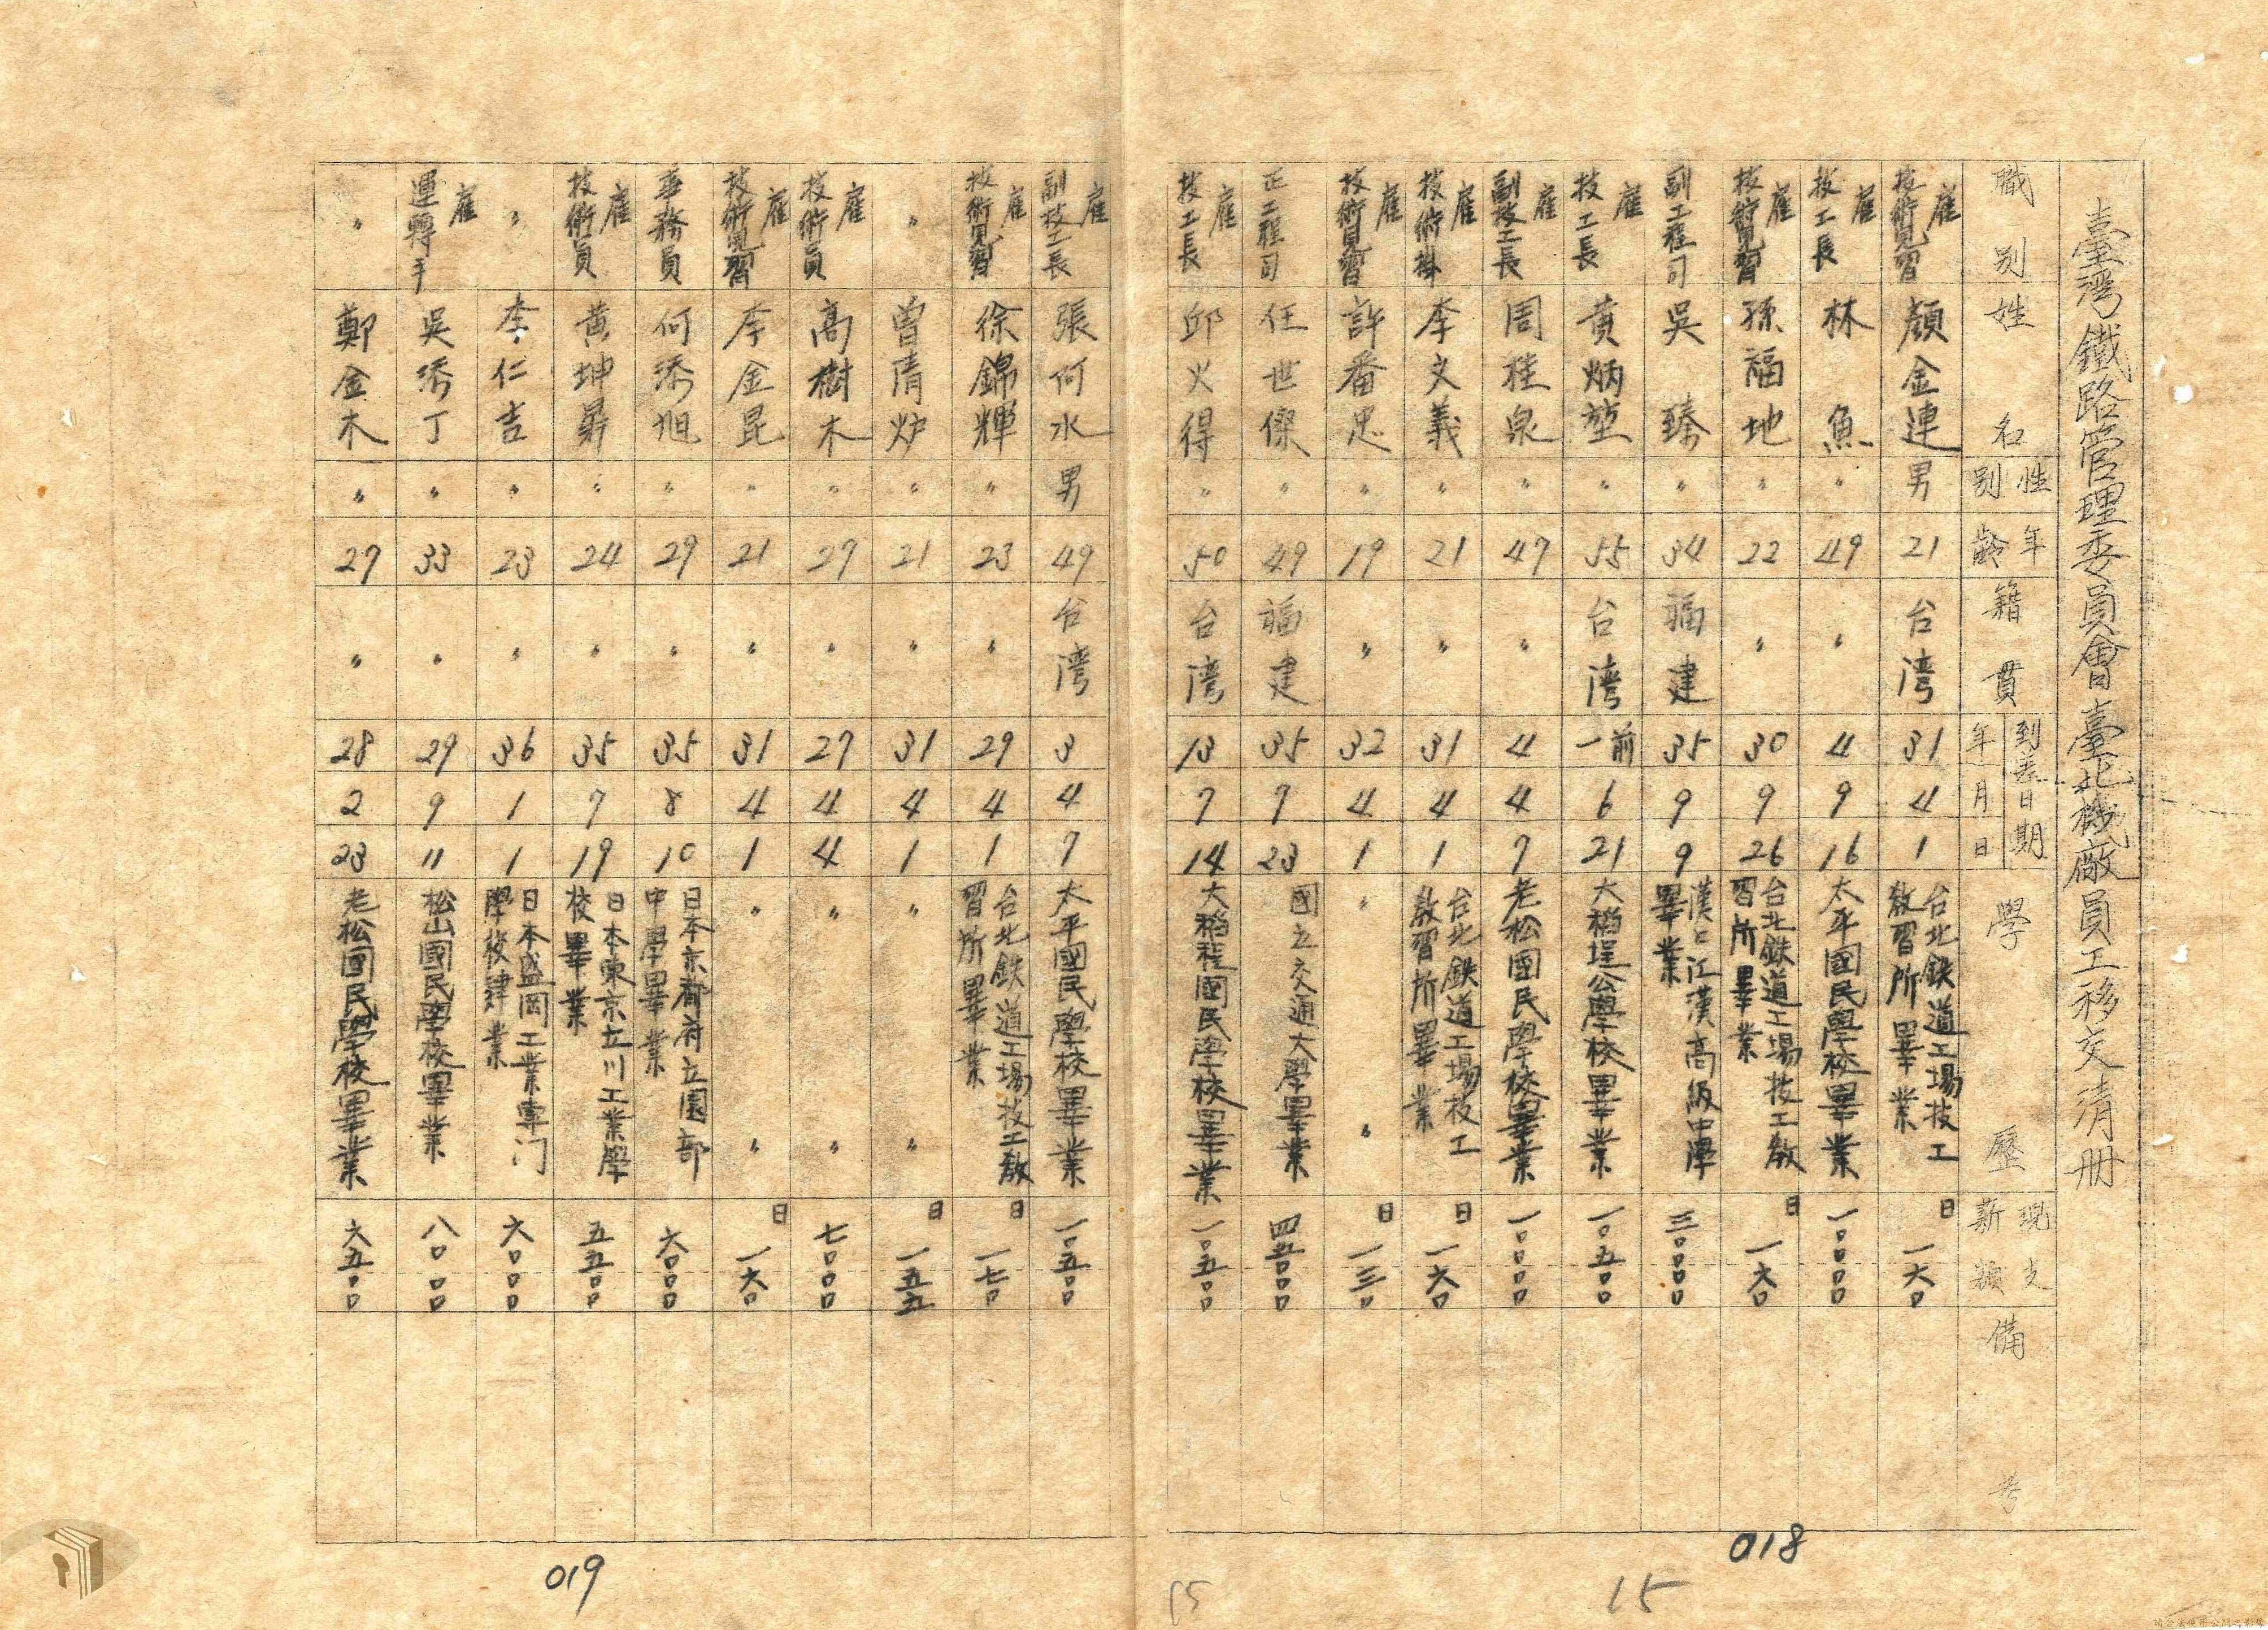 臺灣鐵路管理委員會臺北機廠員工移交清冊
職別 姓名 性別 年齡 籍貫 到差日期 年 月 日 學歷 現支薪額 備考
雇 技術見習 顏金連 男 21 台灣 31 4 1 台北鉄道工場技工教習所畢業 日 一六〇
雇 技工長 林魚 〃 49 〃 4 9 16 太平國民學校畢業 一〇〇〇〇
雇 技術見習 孫福地 〃 22 〃 30 9 26 台北鉄道工場技工教習所畢業 日 一六〇
副工程司 吳臻 〃 34 福建 35 9 9 漢口江漢高級中學畢業 三〇〇〇〇
雇 技工長 黃炳堃 〃 55 台灣 前一 6 21 大稻埕公學校畢業 一〇五〇〇
雇 副技工長 周桂泉 〃 47 〃 4 4 7 老松國民學校畢業 一〇〇〇〇
雇 技術掛 李文義 〃 21 〃 31 4 1 台北鉄道工場技工教習所畢業 日 一六〇
雇 技術見習 許番忠 〃 19 〃 32 4 1 〃 〃 日 一三〇
正工程司 任世傑 〃 49 福建 35 7 23 國立交通大學畢業 四五〇〇〇
雇 技工長 邱火得 〃 50 台灣 13 7 14 大稻程國民學校畢業 一〇五〇〇
018
15
15
雇 副技工長 張何水 男 49 台灣 3 4 7 太平國民學校畢業 一〇五〇〇
雇 技術見習 徐錦輝 〃 23 〃 29 4 1 台北鉄道工場技工教習所畢業 日 一七〇
〃 曾清炉 〃 21 〃 31 4 1 〃 〃 日 一五五
雇 技術員 高樹木 〃 27 〃 27 4 4 〃 〃 七〇〇〇
雇 技術見習 李金昆 〃 21 〃 31 4 1 〃 〃 日 一六〇
事務員 何添旭 〃 29 〃 35 8 10 日本京都府立園部中學畢業 六〇〇〇
雇 技術員 黃坤昇 〃 24 〃 35 7 19 日本東京立川工業學校畢業 五五〇〇
〃 李仁吉 〃 23 〃 36 1 1 日本盛岡工業專门學校肄業 六〇〇〇
雇 運轉手 吳添丁 〃 33 〃 29 9 11 松山國民學校畢業 八〇〇〇
〃 鄭金木 〃 27 〃 28 2 23 老松國民學校畢業 六五〇〇
019